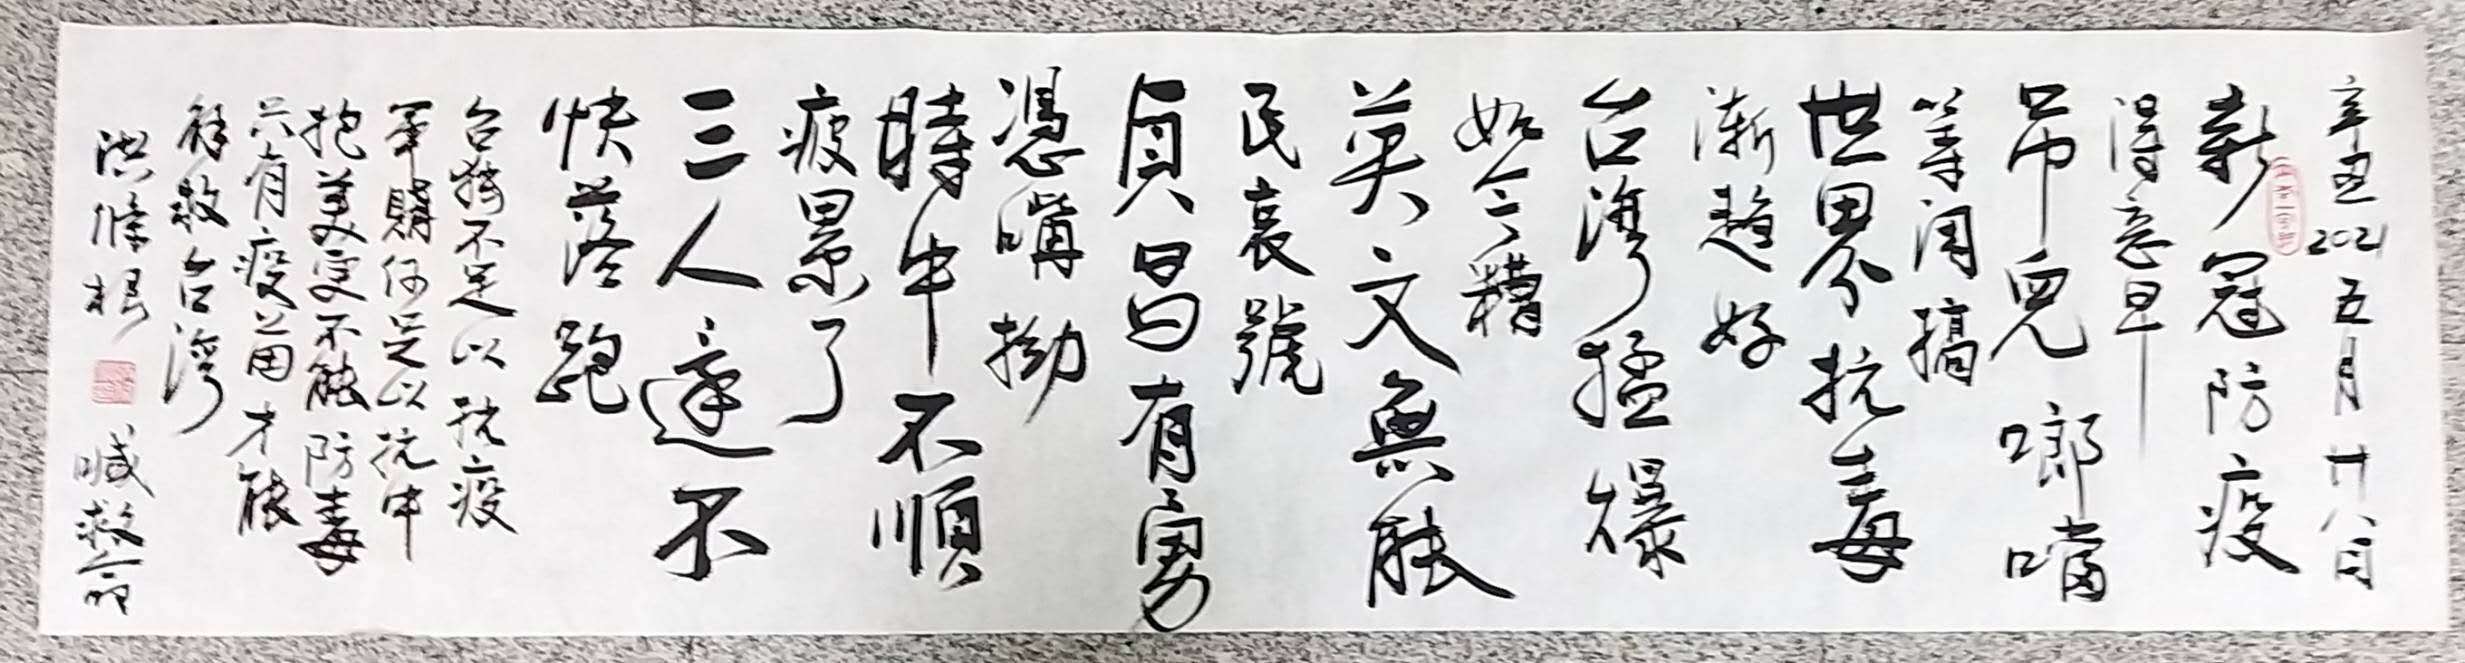 辛丑2021五月廿八日
新冠防疫
得意早
吊兒啷噹
等閑搞
世界抗毒
漸趨好
台灣猛爆
如今糟
英文無能
民哀號
貞昌有勇
憑嘴拗
時中不順
疲累了
三人達不
快落跑
台獨不足以抗疫
軍購何足以抗中
抱美更不能防毒
只有疫苗才能
解救台灣
洪條根 喊救命